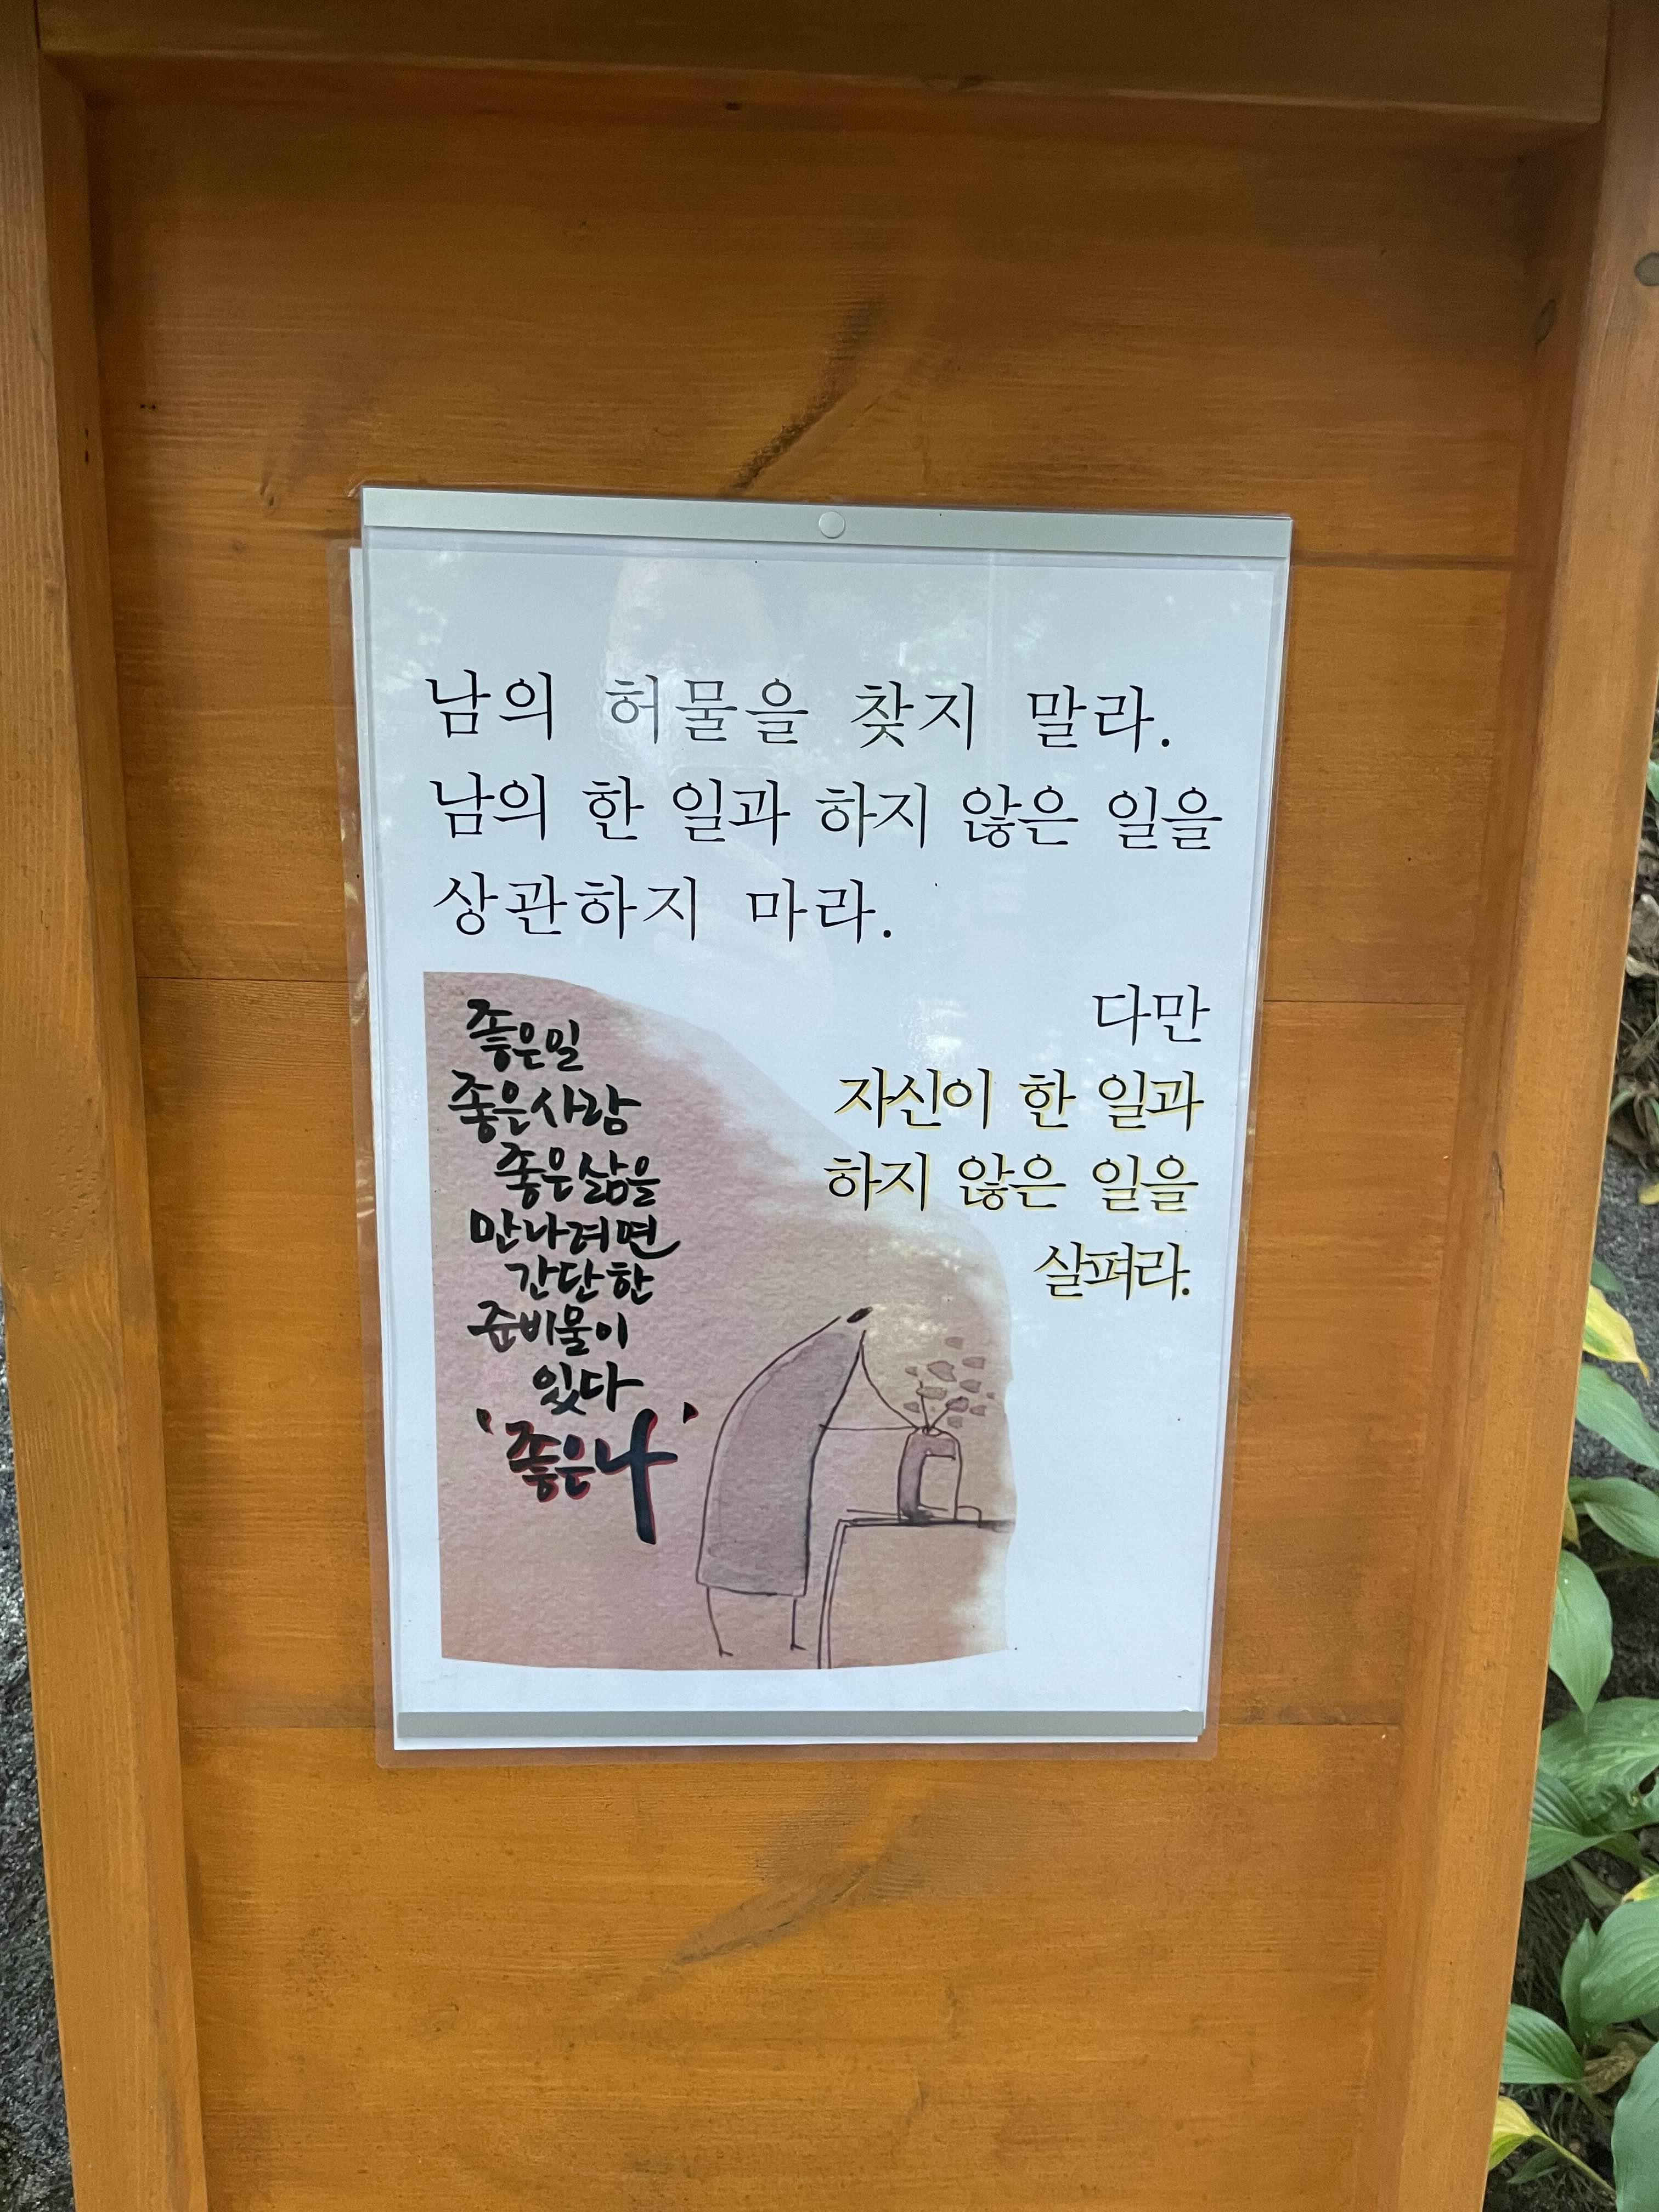 남의 허물을 찾지 말라.
남의 한 일과 하지 않은 일을
상관하지 마라.
다만
자신이 한 일과
하지 않은 일을
살펴라.
좋은일
좋은사람
좋은삶을
만나려면
간단한
준비물이
있다
'좋은나'